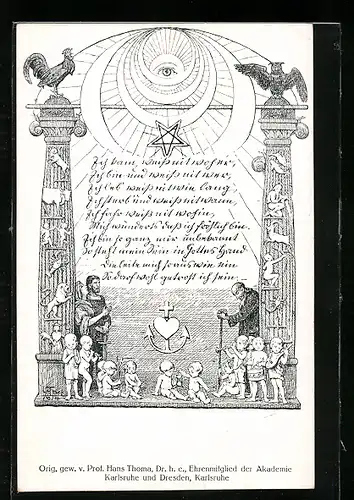 Ich kam, weiß nit woher,
Ich bin und weiß nit wer,
Ich leb weiß nit wie lang,
Ich sterb und weiß nit wann,
Ich fahr weiß nit wohin,
Mich wunderts daß ich fröhlich bin.
Ich bin so ganz mir unbekannt
So steht mein Sein in Gottes Hand
Die leite mich so aus wie ein
So darf wohl getrost ich sein.
Orig. gew. v. Prof. Hans Thoma, Dr. h. c., Ehrenmitglied der Akademie
Karlsruhe und Dresden, Karlsruhe